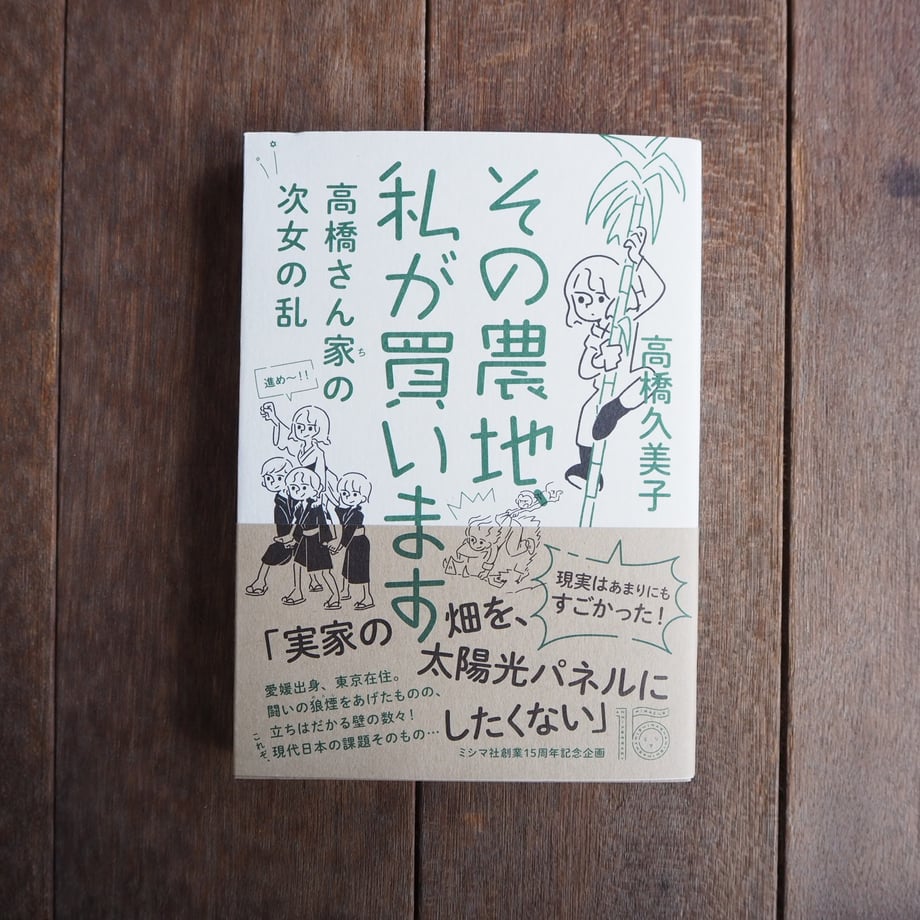 その農地
私が買います
高橋さん家の
ち
次女の乱
高橋久美子
進め〜!!
現実はあまりにも
すごかった!
「実家の畑を、
太陽光パネルに
したくない」
愛媛出身、東京在住。
闘いの狼煙をあげたものの、
立ちはだかる壁の数々!
これぞ、現代日本の課題そのもの…
ミシマ社創業15周年記念企画
15